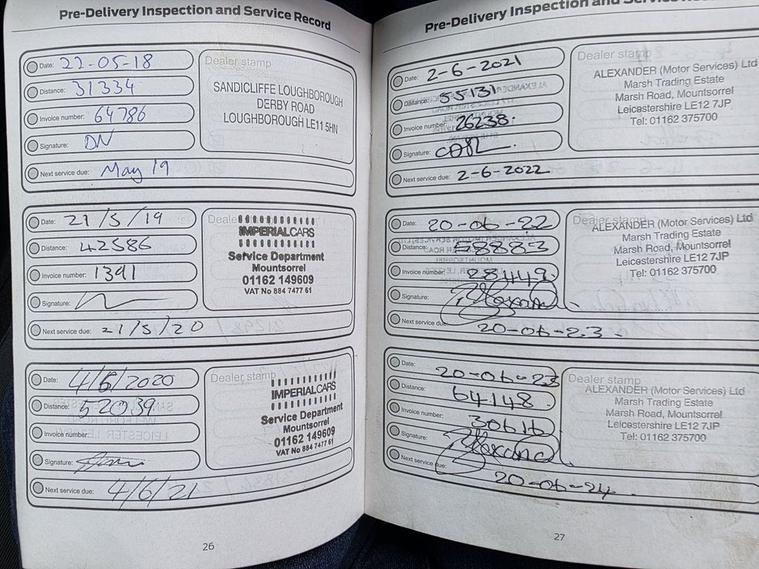 Pre-Delivery Inspection and Service Record
Date: 22-05-18
Distance: 31334
Invoice number: 64786
Signature: DN
Next service due: May 19
Dealer stamp
SANDICLIFFE LOUGHBOROUGH
DERBY ROAD
LOUGHBOROUGH LE11 5HN
Date: 21/5/19
Distance: 42586
Invoice number: 1391
Signature:
Next service due: 21/5/20
Deale
IMPERIALCARS
Service Department
Mountsorrel
01162 149609
VAT No 884 7477 61
Date: 4/6/2020
Distance: 52039
Invoice number:
Signature:
Next service due: 4/6/21
Dealer stamp
IMPERIALCARS
Service Department
Mountsorrel
01162 149609
VAT No 884 7477 61
26
Pre-Delivery Inspection and Service Reco
Date: 2-6-2021
Distance: 55131
Invoice number: 26238.
Signature:
Next service due: 2-6-2022
Dealer stamp
ALEXANDER (Motor Services) Ltd
Marsh Trading Estate
Marsh Road, Mountsorrel
Leicestershire LE12 7JP
Tel: 01162 375700
Date: 20-06-22
Distance: 58883
Invoice number: 28449.
Signature:
Next service due: 20-06-23.
Dealer stamp
ALEXANDER (Motor Services) Ltd
Marsh Trading Estate
Marsh Road, Mountsorrel
Leicestershire LE12 7JP
Tel: 01162 375700
Date: 20-06-23
Distance: 64148.
Invoice number: 30616
Signature:
Next service due: 20-06-24.
Dealer stamp
ALEXANDER (Motor Services) Ltd
Marsh Trading Estate
Marsh Road, Mountsorrel
Leicestershire LE12 7JP
Tel: 01162 375700
27